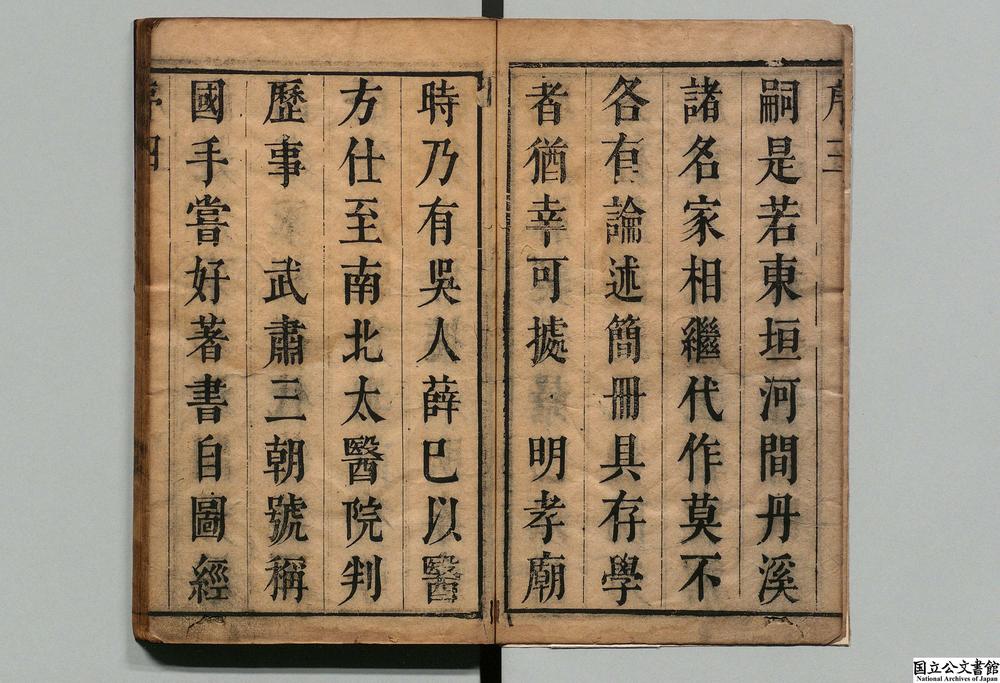 嗣是若東垣河間丹溪
諸名家相繼代作莫不
各有論述簡冊具存學
者猶幸可據 明孝廟
時乃有吳人薛已以醫
方仕至南北太醫院判
歷事 武肅三朝號稱
國手嘗好著書自圖經
序三
序四
国立公文書館
National Archives of Japan